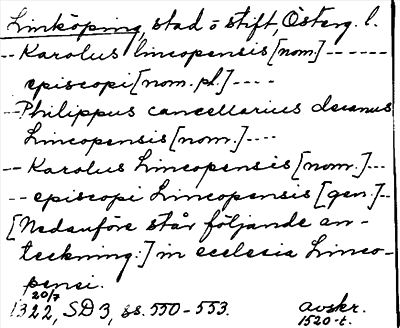 Linköping, stad o stift, Österg. l.
-- Karolus lincopensis [nom] ------
episcopi [nom. pl.] ----
-- Philippus cancellarius decanus
Lincopensis [nom.] ----
-- Karolus Lincopensis [nom.] ---
-- episcopi Lincopensis [gen.] --
[Nedanföre står följande an-
teckning:] in ecclesia Linco-
pensi.
20/7
1322, SD 3, ss. 550-553. avskr.
1520-t.